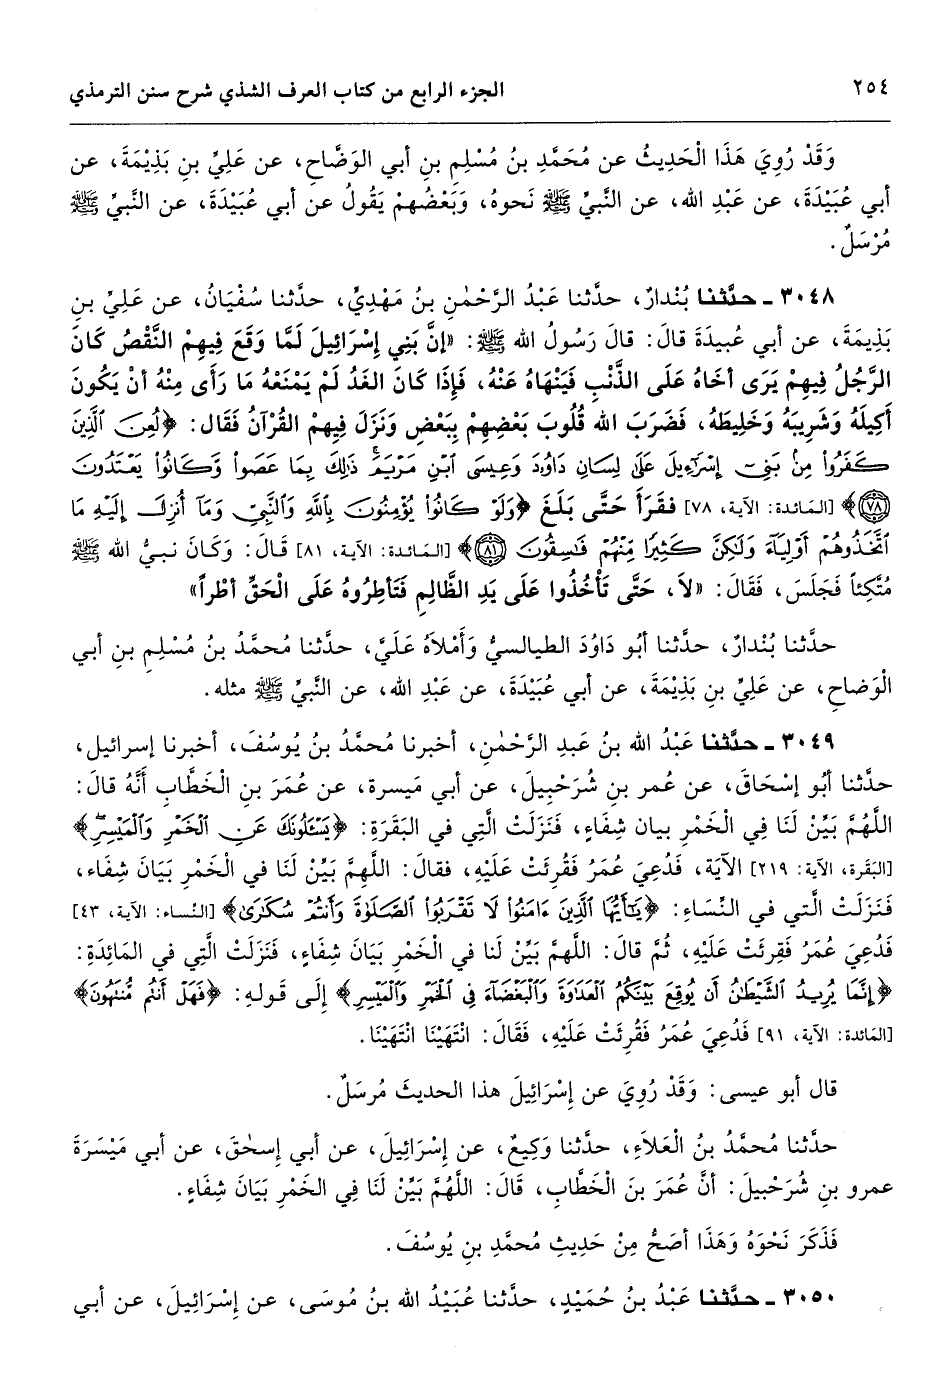 ٢٥٤ الجزء الرابع من كتاب العرف الشذي شرح سنن الترمذي
وَقَدْ رُوِيَ هَذَا الْحَدِيثُ عن مُحَمَّدِ بنُ مُسْلِمِ بنِ أبي الوَضَّاحِ، عن عَلِيِّ بنِ بَذِيْمَةَ، عن
أبي عُبَيْدَةَ، عن عَبْدِ الله، عن النَّبيِّ ﷺ نَحوهُ، وَبَعْضُهمْ يَقُولُ عن أبي عُبَيْدَةَ، عن النَّبيِّ ﷺ
مُرْسَلٌ.
٣٠٤٨ ـ حدَّثنا بُنْدارٌ، حدَّثنا عَبْدُ الرَّحْمٰنِ بنُ مَهْدِيٍّ، حدَّثنا سُفْيَانُ، عن عَلِيِّ بنِ
بَذِيْمَةَ، عن أبي عُبيدَةَ قالَ: قالَ رَسُولُ الله ﷺ: «إنَّ بَنِي إسْرَائِيلَ لَمَّا وَقَعَ فِيهِمْ النَّقْصُ كَانَ
الرَّجُلُ فِيهِمْ يَرَى أخَاهُ عَلَى الذَّنْبِ فَيَنْهَاهُ عَنْهُ، فَإِذَا كَانَ الغَدُ لَمْ يَمْنَعْهُ مَا رَأى مِنْهُ أنْ يَكُونَ
أكِيلَهُ وَشَرِيبَهُ وَخَلِيطَهُ، فَضَرَبَ الله قُلُوبَ بَعْضِهِمْ بِبَعْضٍ وَنَزَلَ فِيهِمْ القُرْآنُ فَقَال: ﴿لُعِنَ ٱلَّذِينَ
كَفَرُوا۟ مِنۢ بَنِىٓ إِسْرَٰٓءِيلَ عَلَىٰ لِسَانِ دَاوُۥدَ وَعِيسَى ٱبْنِ مَرْيَمَ ۚ ذَٰلِكَ بِمَا عَصَوا۟ وَّكَانُوا۟ يَعْتَدُونَ
(٧٨)﴾ [المَائدة: الآية، ٧٨] فقَرَأ حَتَّى بَلَغَ ﴿وَلَوْ كَانُوا۟ يُؤْمِنُونَ بِٱللَّهِ وَٱلنَّبِىِّ وَمَآ أُنزِلَ إِلَيْهِ مَا
ٱتَّخَذُوهُمْ أَوْلِيَآءَ وَلَٰكِنَّ كَثِيرًا مِّنْهُمْ فَٰسِقُونَ (٨١)﴾ [المَائدة: الآية، ٨١] قَالَ: وَكَانَ نَبيُّ الله ﷺ
مُتَّكِئاً فَجَلَسَ، فَقَالَ: «لاَ، حَتَّى تَأْخُذُوا عَلَى يَدِ الظَّالِمِ فَتَأطِرُوهُ عَلَى الْحَقِّ أطْراً»
حدَّثنا بُنْدارٌ، حدَّثنا أبُو دَاوُدَ الطيالسيُّ وَأمْلاَهُ عَلَيَّ، حدَّثنا مُحمَّدُ بنُ مُسْلِمِ بنِ أبي
الْوَضاحِ، عن عَلِيِّ بنِ بَذِيْمَةَ، عن أبي عُبَيْدَةَ، عن عَبْدِ الله، عن النَّبيِّ ﷺ مثله.
٣٠٤٩ ـ حدَّثنا عَبْدُ الله بنُ عَبدِ الرَّحْمٰنِ، أخبرنا مُحمَّدُ بنُ يُوسُفَ، أخبرنا إسرائيل،
حدَّثنا أبُو إسْحَاقَ، عن عُمر بنِ شُرَحْبِيلَ، عن أبي مَيسرة، عن عُمَرَ بنِ الْخَطَّابِ أَنَّهُ قالَ:
اللَّهُمَّ بَيِّنْ لَنَا فِي الْخَمْرِ بيان شِفَاءٍ، فَنَزَلَتْ الَّتِي في البَقَرَةِ: ﴿يَسْـَٔلُونَكَ عَنِ ٱلْخَمْرِ وَٱلْمَيْسِرِ ۖ﴾
[البَقَرَة، الآية: ٢١٩] الآيَة، فَدُعِيَ عُمَرُ فَقُرِئَتْ عَلَيْهِ، فقالَ: اللهمَّ بَيِّنْ لَنَا في الْخَمْرِ بَيَانَ شِفَاء،
فَنَزَلَتْ الَّتي في النِّسَاءِ: ﴿يَٰٓأَيُّهَا ٱلَّذِينَ ءَامَنُوا۟ لَا تَقْرَبُوا۟ ٱلصَّلَوٰةَ وَأَنتُمْ سُكَٰرَىٰ﴾ [النِّساء: الآية، ٤٣]
فَدُعِيَ عُمَرُ فَقِرئَتْ عَلَيْهِ، ثُمَّ قالَ: اللهمَّ بَيِّنْ لَنا في الْخَمْرِ بَيَانَ شِفَاءٍ، فَنَزَلَتْ الَّتِي في المَائِدَةِ:
﴿إِنَّمَا يُرِيدُ ٱلشَّيْطَٰنُ أَن يُوقِعَ بَيْنَكُمُ ٱلْعَدَٰوَةَ وَٱلْبَغْضَآءَ فِى ٱلْخَمْرِ وَٱلْمَيْسِرِ﴾ إِلَى قَولِهِ: ﴿فَهَلْ أَنتُم مُّنتَهُونَ﴾
[المَائدة: الآية، ٩١] فَدُعِيَ عُمَرُ فَقُرِئَتْ عَلَيْهِ، فَقَالَ: انْتَهَيْنَا انْتَهَيْنَا.
قال أبو عيسى: وَقَدْ رُوِيَ عن إِسْرَائِيلَ هذا الحديثَ مُرسَلٌ.
حدَّثنا مُحمَّدُ بنُ الْعَلاَءِ، حدَّثنا وَكِيعٌ، عن إِسْرَائِيلَ، عن أبي إسحٰقَ، عن أبي مَيْسَرَةَ
عمرو بنِ شُرَحْبيلَ: أنَّ عُمَرَ بنَ الْخَطَّابِ، قَالَ: اللَّهُمَّ بَيِّنْ لَنَا فِي الخَمْرِ بَيَانَ شِفَاءٍ.
فَذَكَرَ نَحْوَهُ وَهَذَا أصَحُّ مِنْ حَدِيثِ مُحمَّدِ بنِ يُوسُفَ.
٣٠٥٠ ـ حدَّثنا عَبْدُ بنُ حُمَيْدٍ، حدَّثنا عُبَيْدُ الله بنُ مُوسَى، عن إِسْرَائِيلَ، عن أبي